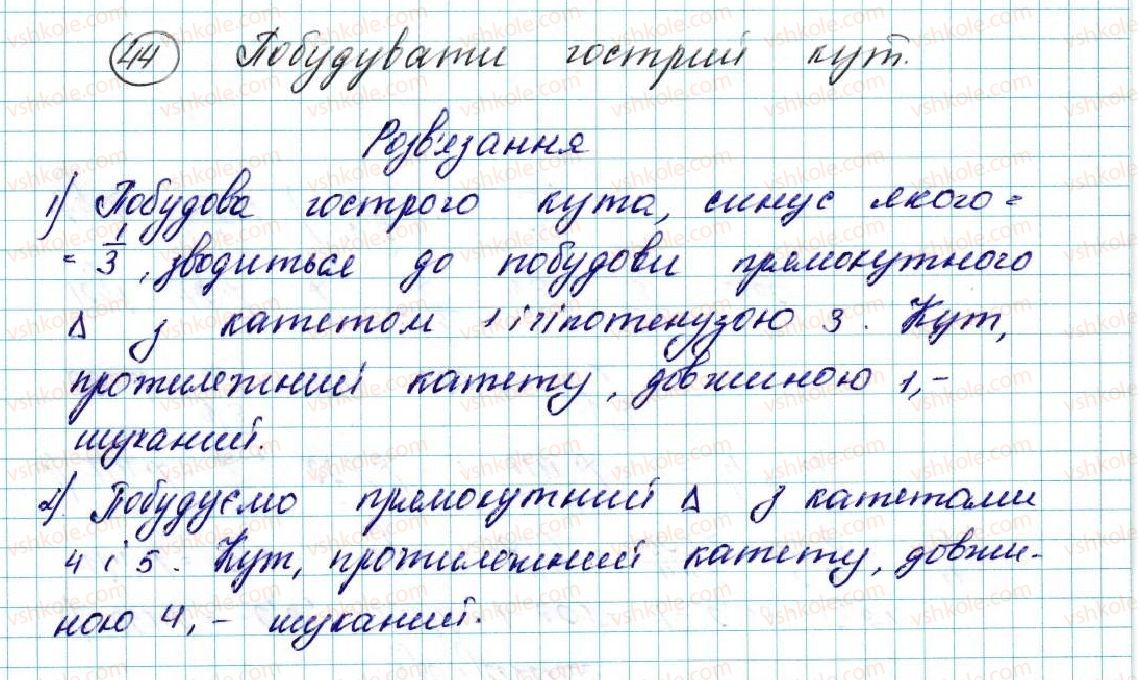 44 Побудувати гострий кут.
Розв'язання
1) Побудова гострого кута, синус якого =
= 1/3, зводиться до побудови прямокутного
Δ з катетом 1 і гіпотенузою 3. Кут,
протилежний катету, довжиною 1, –
шуканий.
2) Побудуємо прямокутний Δ з катетами
4 і 5. Кут, протилежний катету, довжи-
ною 4, – шуканий.